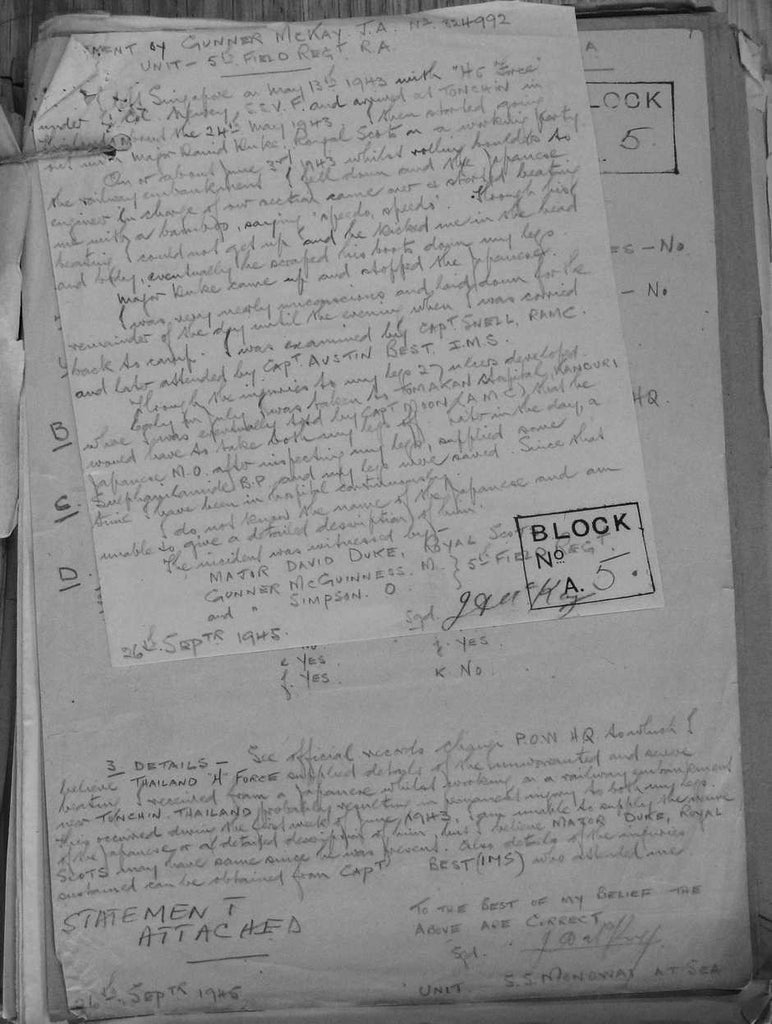 MENT by GUNNER MCKAY J.A. No 824992
UNIT - 5th FIELD REGT R.A.
left Singapore on May 13th 1943 with "H6 Force"
under Col. S.S.V.F. and arrived at TONCHIN in
about the 24th May 1943. I then started going
out with Major David Duke, Royal Scots on a working party.
On or about June 3rd 1943 whilst rolling boulders to
the railway embankment I fell down and the Japanese
engineer in charge of our section came over & started beating
me with a bamboo, saying 'speedo, speedo'. Through his
beating I could not get up and he kicked me in the head
and body, eventually he scraped his boots down my legs
Major Duke came up and stopped the Japanese.
I was very nearly unconscious and laid down for the
remainder of the day until the evening when I was carried
back to camp. I was examined by CAPT SNELL, RAMC.
and later attended by CAPT AUSTIN BEST, I.M.S.
Through the injuries to my legs 27 ulcers developed.
Early in July I was taken to TOMAKAN Hospital, KANBURI
where I was eventually told by CAPT MOON (A.M.C) that he
would have to take both my legs off. Later in the day, a
Japanese M.O. after inspecting my legs, supplied some
Sulphanilamide B.P. and my legs were saved. Since that
time I have been in hospital continuously.
I do not know the name of the Japanese and am
unable to give a detailed description of him.
The incident was witnessed by:-
MAJOR DAVID DUKE, ROYAL SCOTS
GUNNER MCGUINNESS. M. } 5th FIELD REGT.
and " SIMPSON. O.
Sgd. J A McKay
26th SEPTR 1945.
BLOCK
No
A. 5.
A
LOCK
5.
ES - No
- No
HQ.
B
C
D
e YES
f. YES
j. YES
K. No
3 DETAILS - See official records Changi P.O.W HQ to which I
believe THAILAND "H" FORCE supplied details of the unwarranted and severe
beating I received from a Japanese whilst working on a railway embankment
near TONCHIN, THAILAND probably resulting in permanent injury to both my legs.
This occurred during the first week of June, 1943. I am unable to supply the name
of the Japanese or a detailed description of him, but I believe MAJOR DUKE, ROYAL
SCOTS may have same since he was present. Also details of the injuries
sustained can be obtained from CAPT BEST (IMS) who attended me.
STATEMENT
ATTACHED
TO THE BEST OF MY BELIEF THE
ABOVE ARE CORRECT
Sgd.
26th SEPTR 1945
UNIT S.S. MONOWAI AT SEA